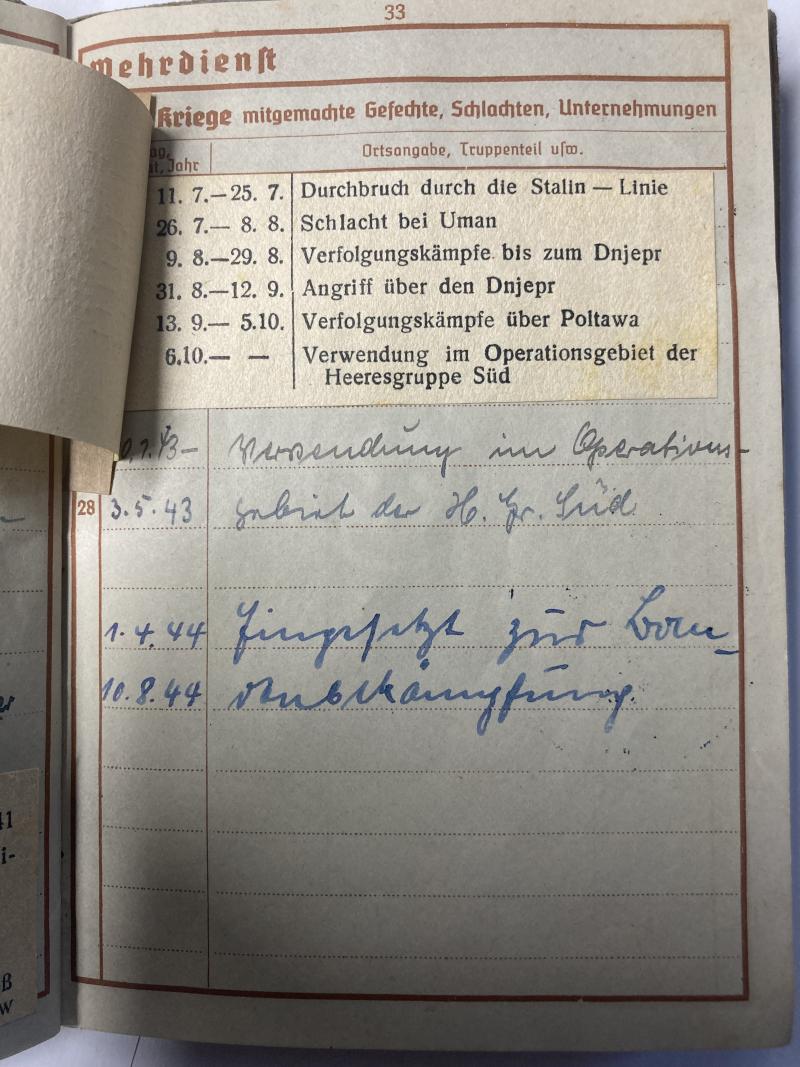 33
Wehrdienst
Kriege mitgemachte Gefechte, Schlachten, Unternehmungen
Jahr
Ortsangabe, Truppenteil usw.
11. 7.—25. 7. Durchbruch durch die Stalin — Linie
26. 7.— 8. 8. Schlacht bei Uman
9. 8.—29. 8. Verfolgungskämpfe bis zum Dnjepr
31. 8.—12. 9. Angriff über den Dnjepr
13. 9.— 5.10. Verfolgungskämpfe über Poltawa
6.10.— — Verwendung im Operationsgebiet der
Heeresgruppe Süd
Verwendung im Operations-
28 3.5.43 gebiet der H. Gr. Süd
1.4.44 Eingesetzt zur Ban-
10.8.44 denbekämpfung.
41
i-
ß
w